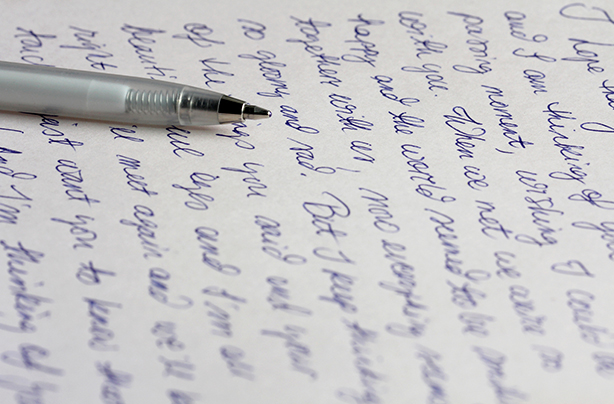 I hope
and I am thinking of you
passing moment, wishing I could be
with you. When we met we were so
happy and the world seemed to be
together with us! now everything
so gloomy and sad. But I keep thinking
of the you said and your
eyes and I'm
right met again and we'll
want you to know that
And I'm thinking of you